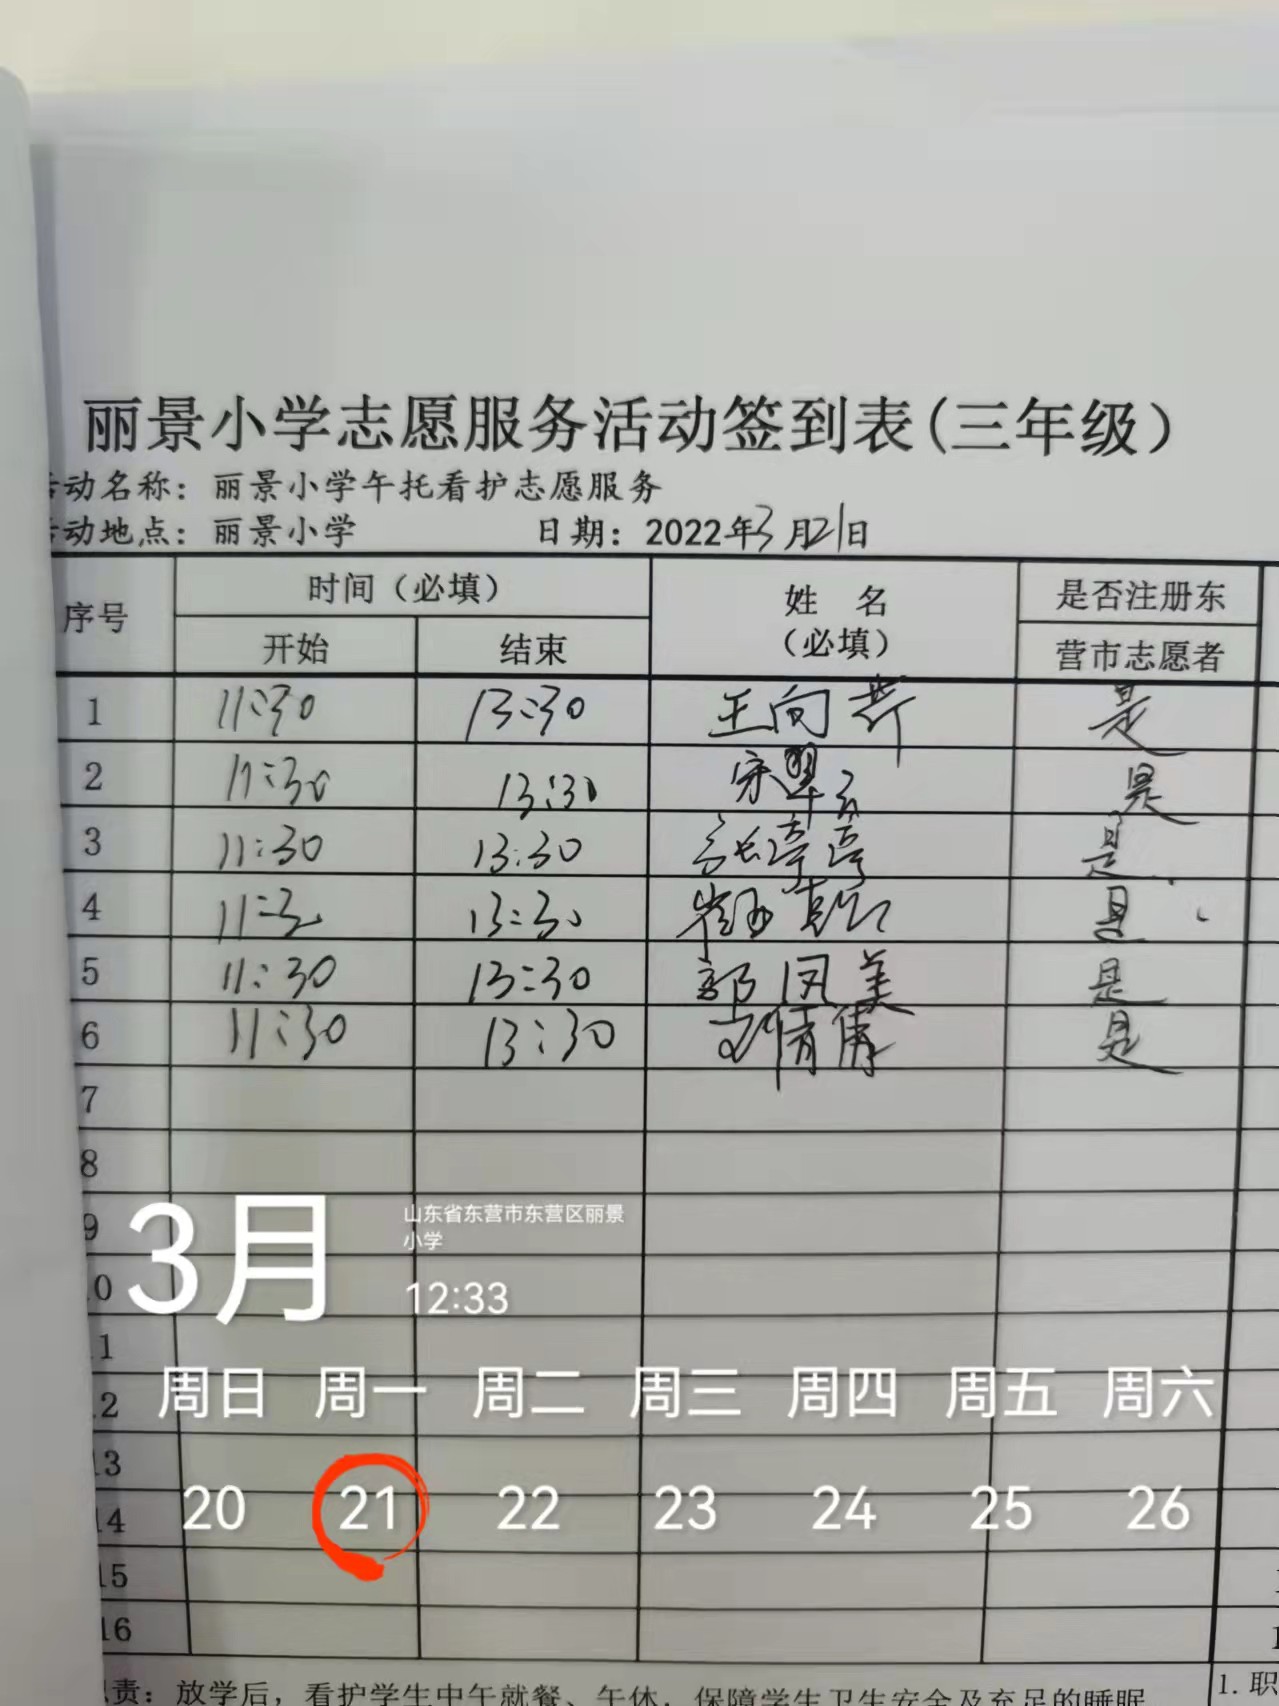 丽景小学志愿服务活动签到表(三年级)
动名称：丽景小学午托看护志愿服务
动地点：丽景小学 日期：2022年3月21日
序号 时间（必填） 姓 名（必填） 是否注册东营市志愿者
开始 结束
1 11:30 13:30 王向 是
2 11:30 13:30 宋翠 是
3 11:30 13:30 张婷婷 是
4 11:30 13:30 崔 是
5 11:30 13:30 郭凤美 是
6 11:30 13:30 刘倩倩 是
7
8
9
10
11
12
13
14
15
16
3月
山东省东营市东营区丽景
小学
12:33
周日 周一 周二 周三 周四 周五 周六
20 21 22 23 24 25 26
责：放学后，看护学生中午就餐、午休，保障学生卫生安全及充足的睡眠
1. 职